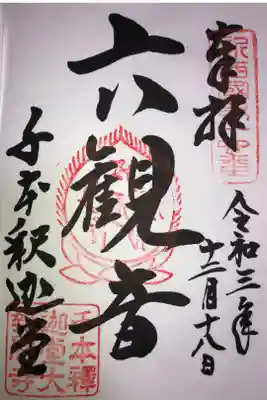 奉拝
令和三年
十二月十八日
六観音
千本釈迦堂
千本釋
迦堂大
報恩寺